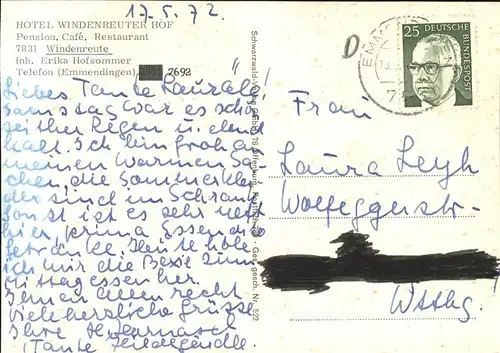 17.5.72.
HOTEL WINDENREUTER HOF
Pension, Café, Restaurant
7831 Windenreute
Inh. Erika Hofsommer
Telefon (Emmendingen) 7692
Liebes Tante Laurale!
Samstag war es schön
seither Regen u. elend
kalt. Ich bin froh an
meinen warmen Sa-
chen, die Sommerklei
der sind im Schrank
Sonst ist es sehr nett
hier, prima Essen u.
Heute hole
ich mir die Bexie zum
Mittagessen her.
Ihnen allen recht
viele herzliche Grüsse
Ihre
(Tante
Schwarzwald-Verlag GmbH 76 Offenburg
Ges. gesch. Nr. 522
EMMENDINGEN
25
DEUTSCHE
BUNDESPOST
Frau
Laura Leyh
Wolfeggerstr.